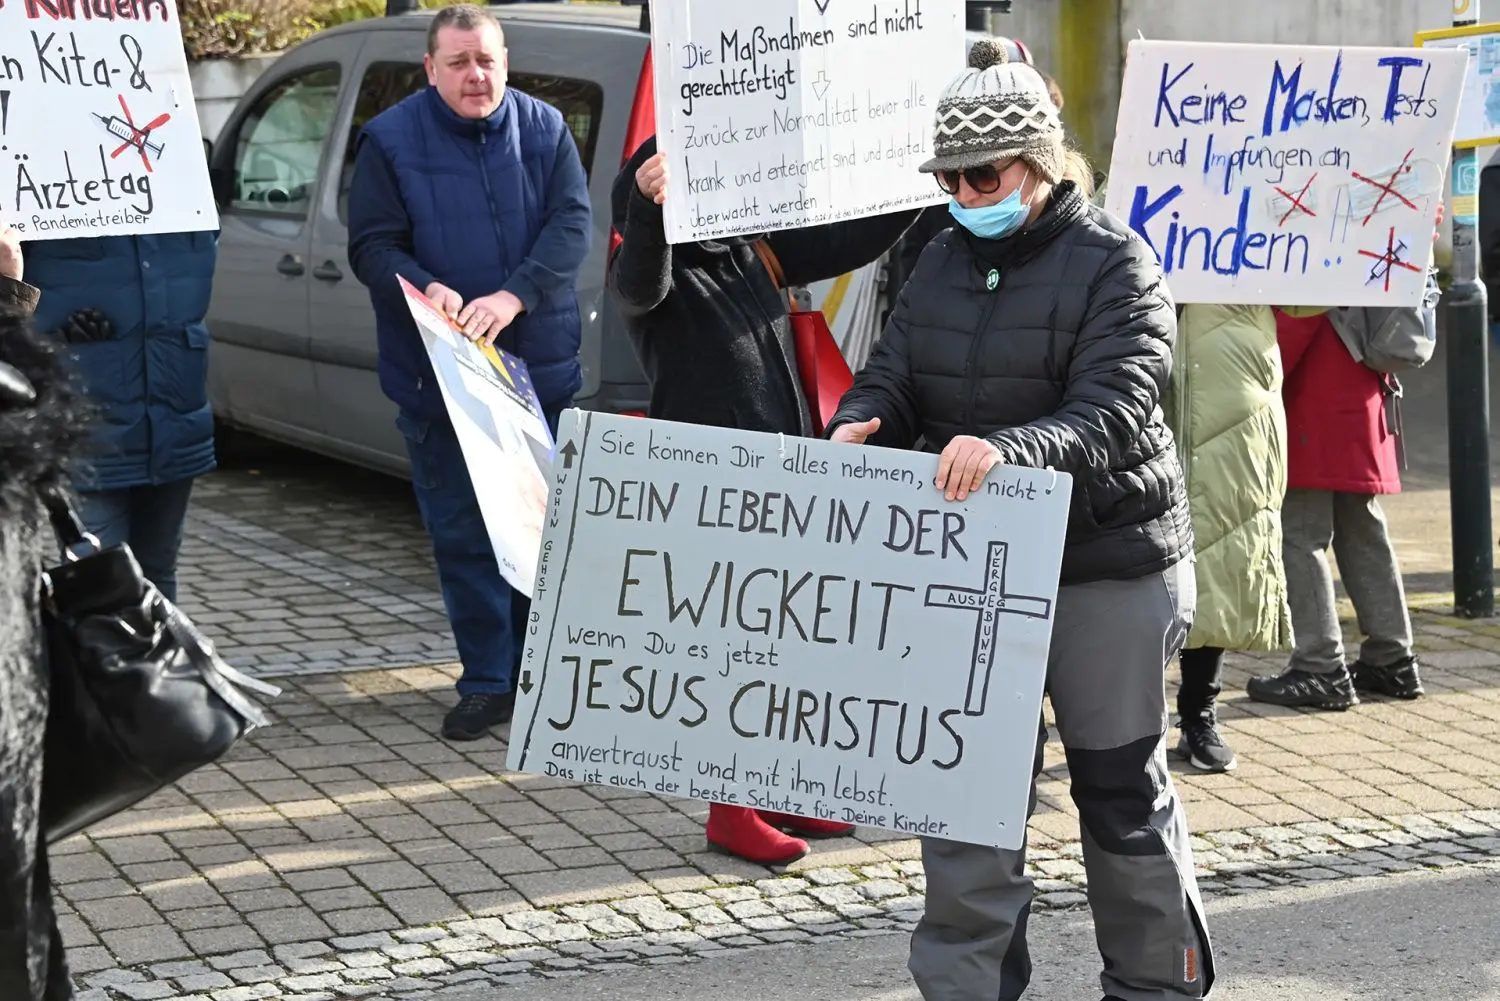 Kindern
Kita- &
!
Ärztetag
Pandemietreiber
Die Maßnahmen sind nicht
gerechtfertigt
Zurück zur Normalität bevor alle
krank und enteignet sind und digital
überwacht werden
Keine Masken, Tests
und Impfungen an
Kindern !!
WOHIN GEHST DU?
Sie können Dir alles nehmen, nicht
DEIN LEBEN IN DER
EWIGKEIT,
wenn Du es jetzt
JESUS CHRISTUS
anvertraust und mit ihm lebst.
Das ist auch der beste Schutz für Deine Kinder.
AUSWEG
VERGEBUNG